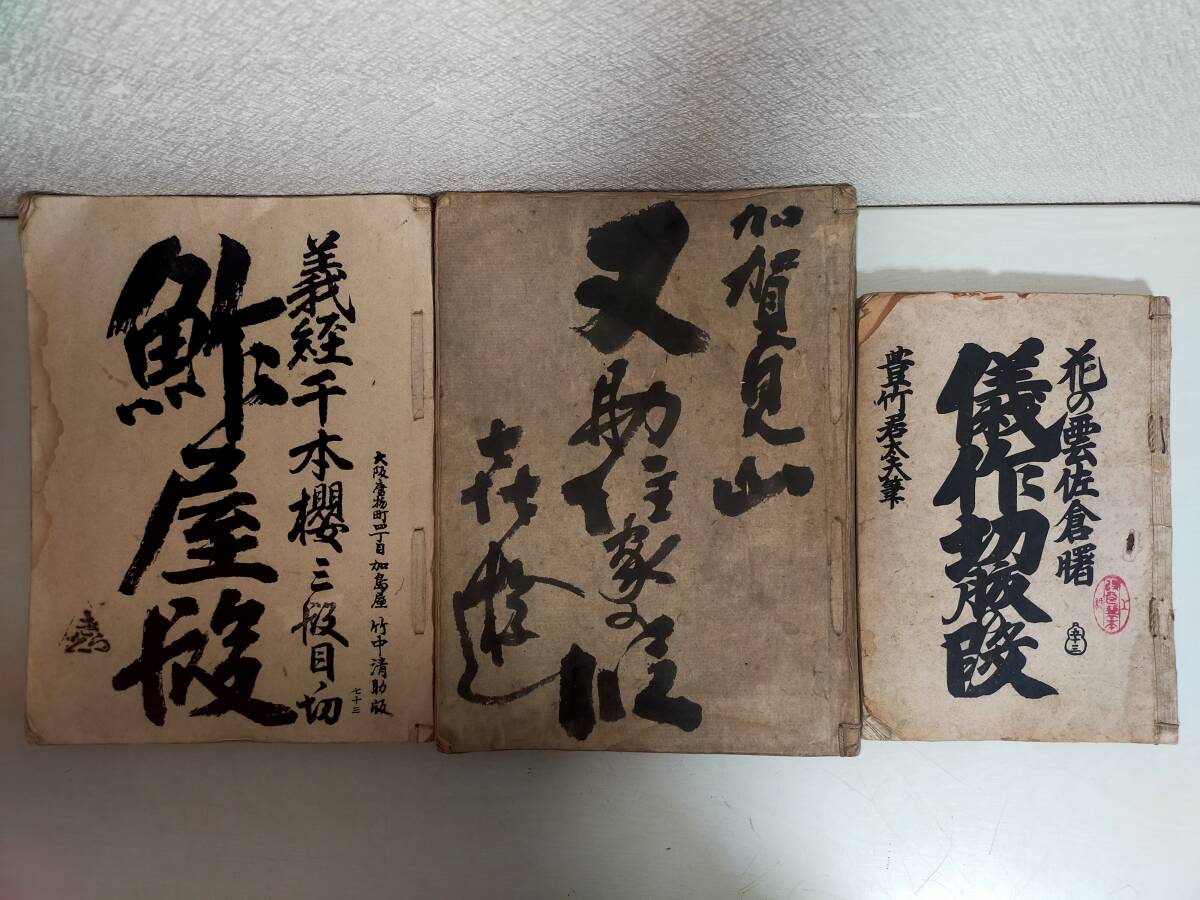 義経千本櫻 三段目ノ切
鮓屋段
大阪唐物町四丁目 加島屋 竹中清助版
七十三
加賀見山
又助住家の段
花の雲佐倉曙
儀作切腹の段
豊竹君太夫筆
五十三